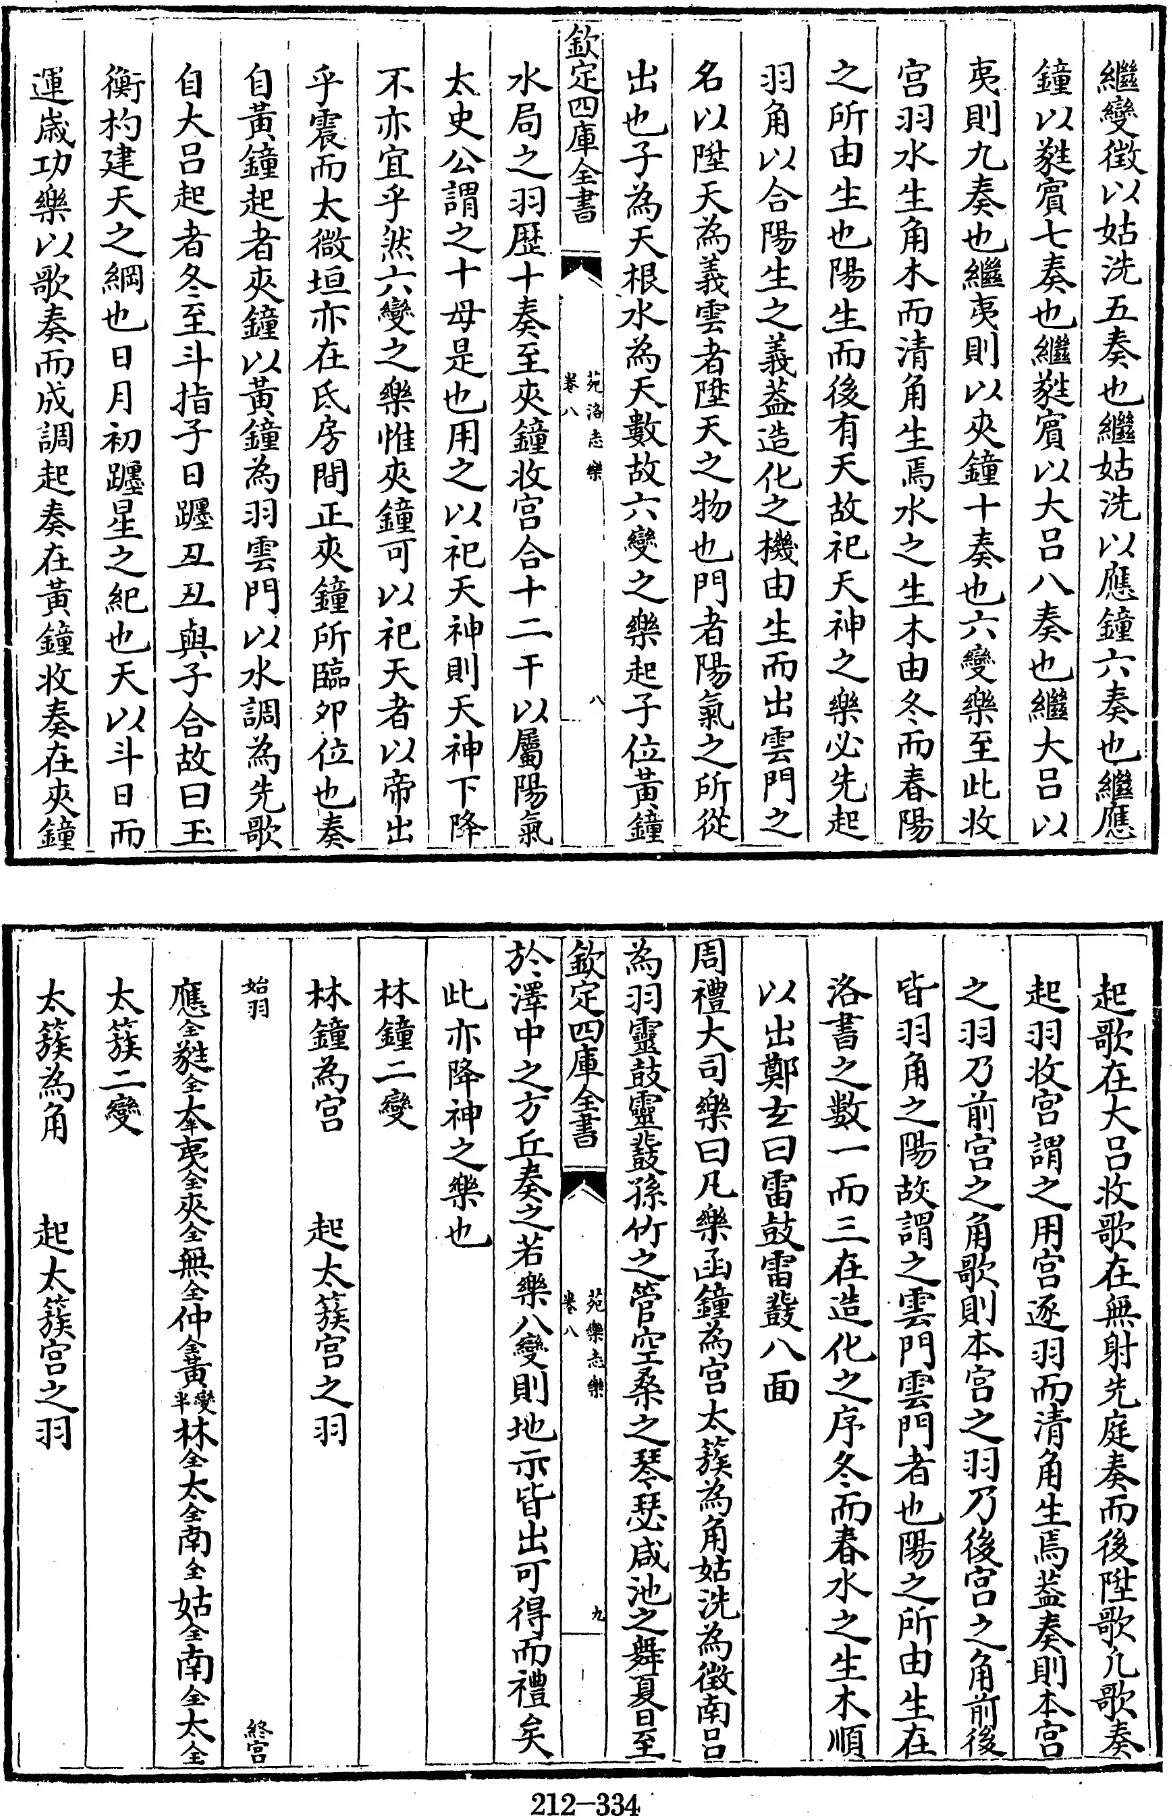 繼變徵以姑洗五奏也繼姑洗以應鐘六奏也繼應
鐘以蕤賓七奏也繼蕤賓以大呂八奏也繼大呂以
夷則九奏也繼夷則以夾鐘十奏也六變樂至此收
宫羽水生角木而清角生焉水之生木由冬而春陽
之所由生也陽生而後有天故祀天神之樂必先起
羽角以合陽生之義蓋造化之機由生而出雲門之
名以陞天為義雲者陞天之物也門者陽氣之所從
出也子為天根水為天數故六變之樂起子位黃鐘
欽定四庫全書
苑洛志樂
卷八
八
水局之羽歴十奏至夾鐘收宫合十二干以屬陽氣
太史公謂之十母是也用之以祀天神則天神下降
不亦宜乎然六變之樂惟夾鐘可以祀天者以帝出
乎震而太微垣亦在氐房間正夾鐘所臨夘位也奏
自黃鐘起者夾鐘以黃鐘為羽雲門以水調為先歌
自大呂起者冬至斗指子日躔丑丑與子合故曰玉
衡杓建天之綱也日月初躔星之紀也天以斗日而
運歲功樂以歌奏而成調起奏在黃鐘收奏在夾鐘
起歌在大呂收歌在無射先庭奏而後陞歌凡歌奏
起羽收宫謂之用宫逐羽而清角生焉蓋奏則本宫
之羽乃前宫之角歌則本宫之羽乃後宫之角前後
皆羽角之陽故謂之雲門雲門者也陽之所由生在
洛書之數一而三在造化之序冬而春水之生木順
以出鄭玄曰雷鼓雷鼗八面
周禮大司樂曰凡樂函鐘為宫太簇為角姑洗為徵南呂
為羽靈鼓靈鼗孫竹之管空桑之琴瑟咸池之舞夏日至
欽定四庫全書
苑樂志樂
卷八
九
於澤中之方丘奏之若樂八變則地示皆出可得而禮矣
此亦降神之樂也
林鐘二變
林鐘為宫 起太簇宫之羽
始羽 終宫
應全蕤全大半夷全夾全無全仲全黃變半林全太全南全姑全南全太全
太簇二變
太簇為角 起太簇宫之羽
212-334